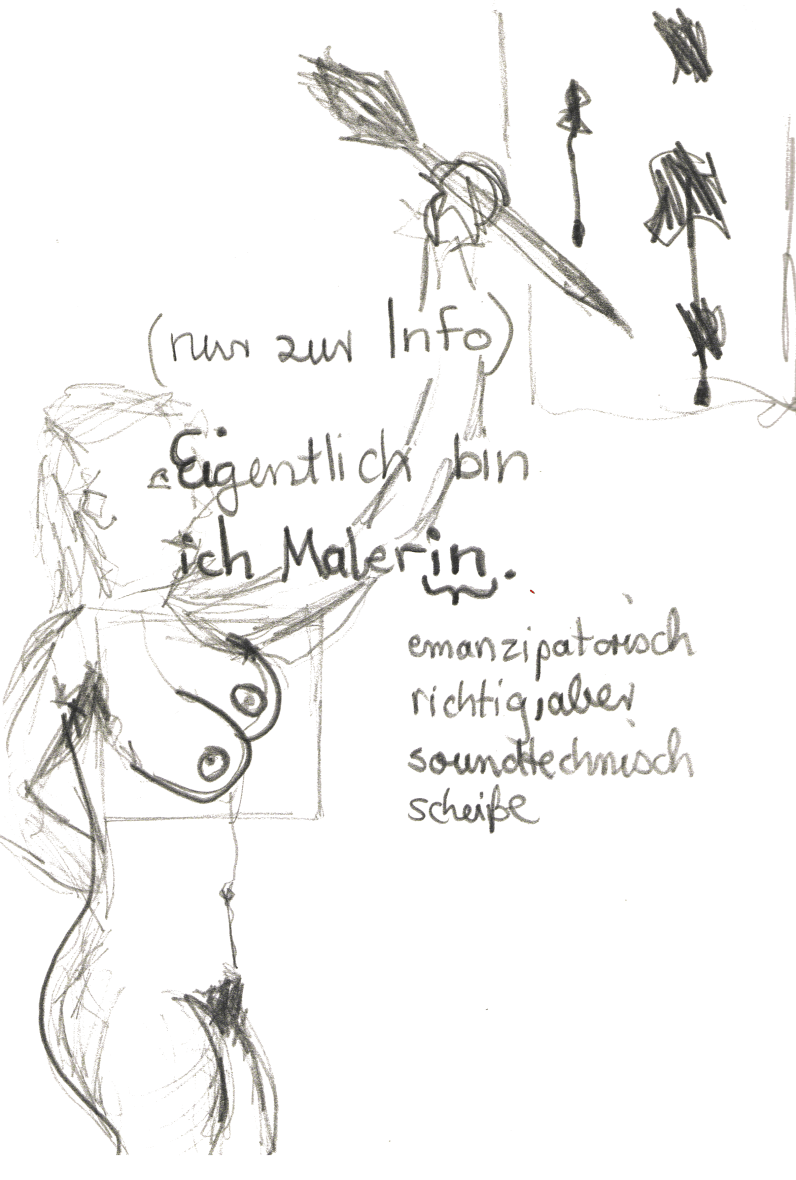 (nur zur Info)
Eigentlich bin
ich Malerin.
emanzipatorisch
richtig, aber
soundtechnisch
scheiße